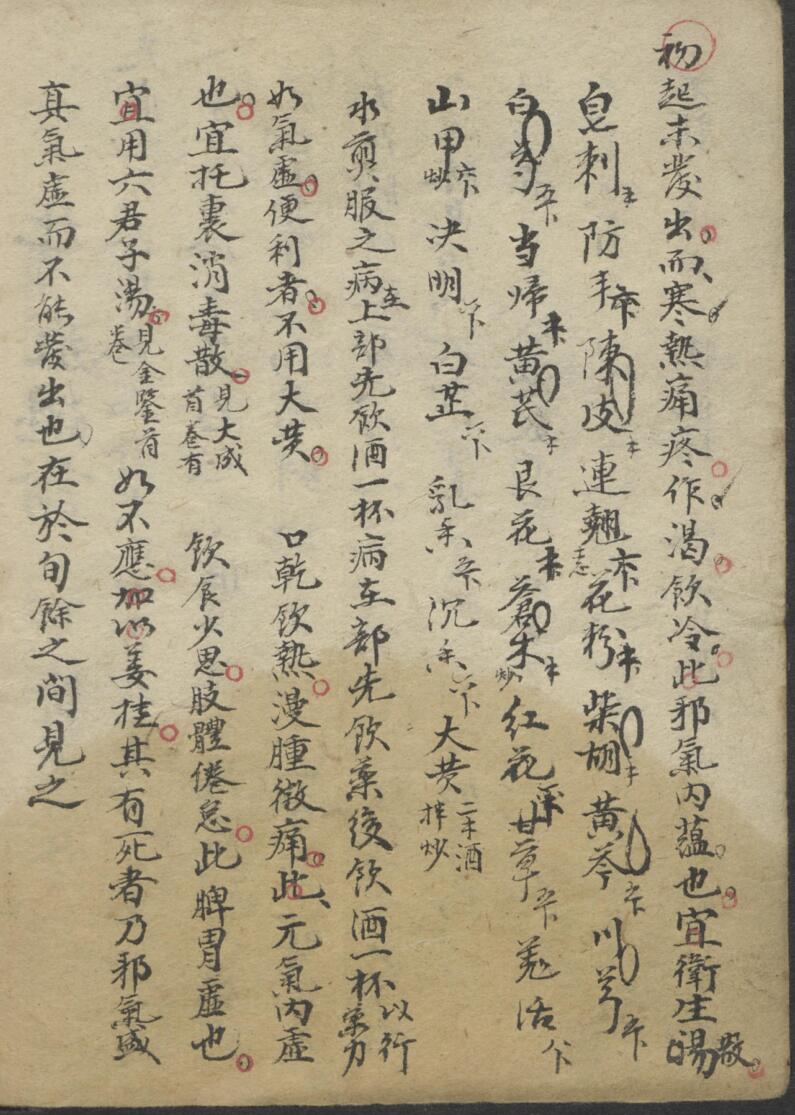 初起未發出而寒熱痛疼作渴飲冷此邪氣內蘊也宜衛生湯散
皂刺 防 陳皮 連翹 花粉 柴胡 黃芩 川芎
白芍 当歸 黃芪 艮花 蒼术炒 紅花 甘草 羗活
山甲炒 决明 白芷 乳香 沉香 大黄二酒拌炒
水煎服之病在上部先飲酒一杯病在部先飲藥後飲酒一杯以行藥力
如氣虛便利者不用大黄 口乾飲熱漫腫微痛此元氣內虛
也宜托裏消毒散見大成首卷有 飲食少思肢體倦怠此脾胃虛也
宜用六君子湯見金鑒首卷 如不應加以姜桂其有死者乃邪氣盛
真氣虛而不能發出也在於旬餘之間見之